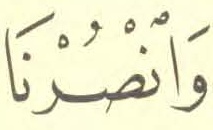 وَانْصُرْنَا